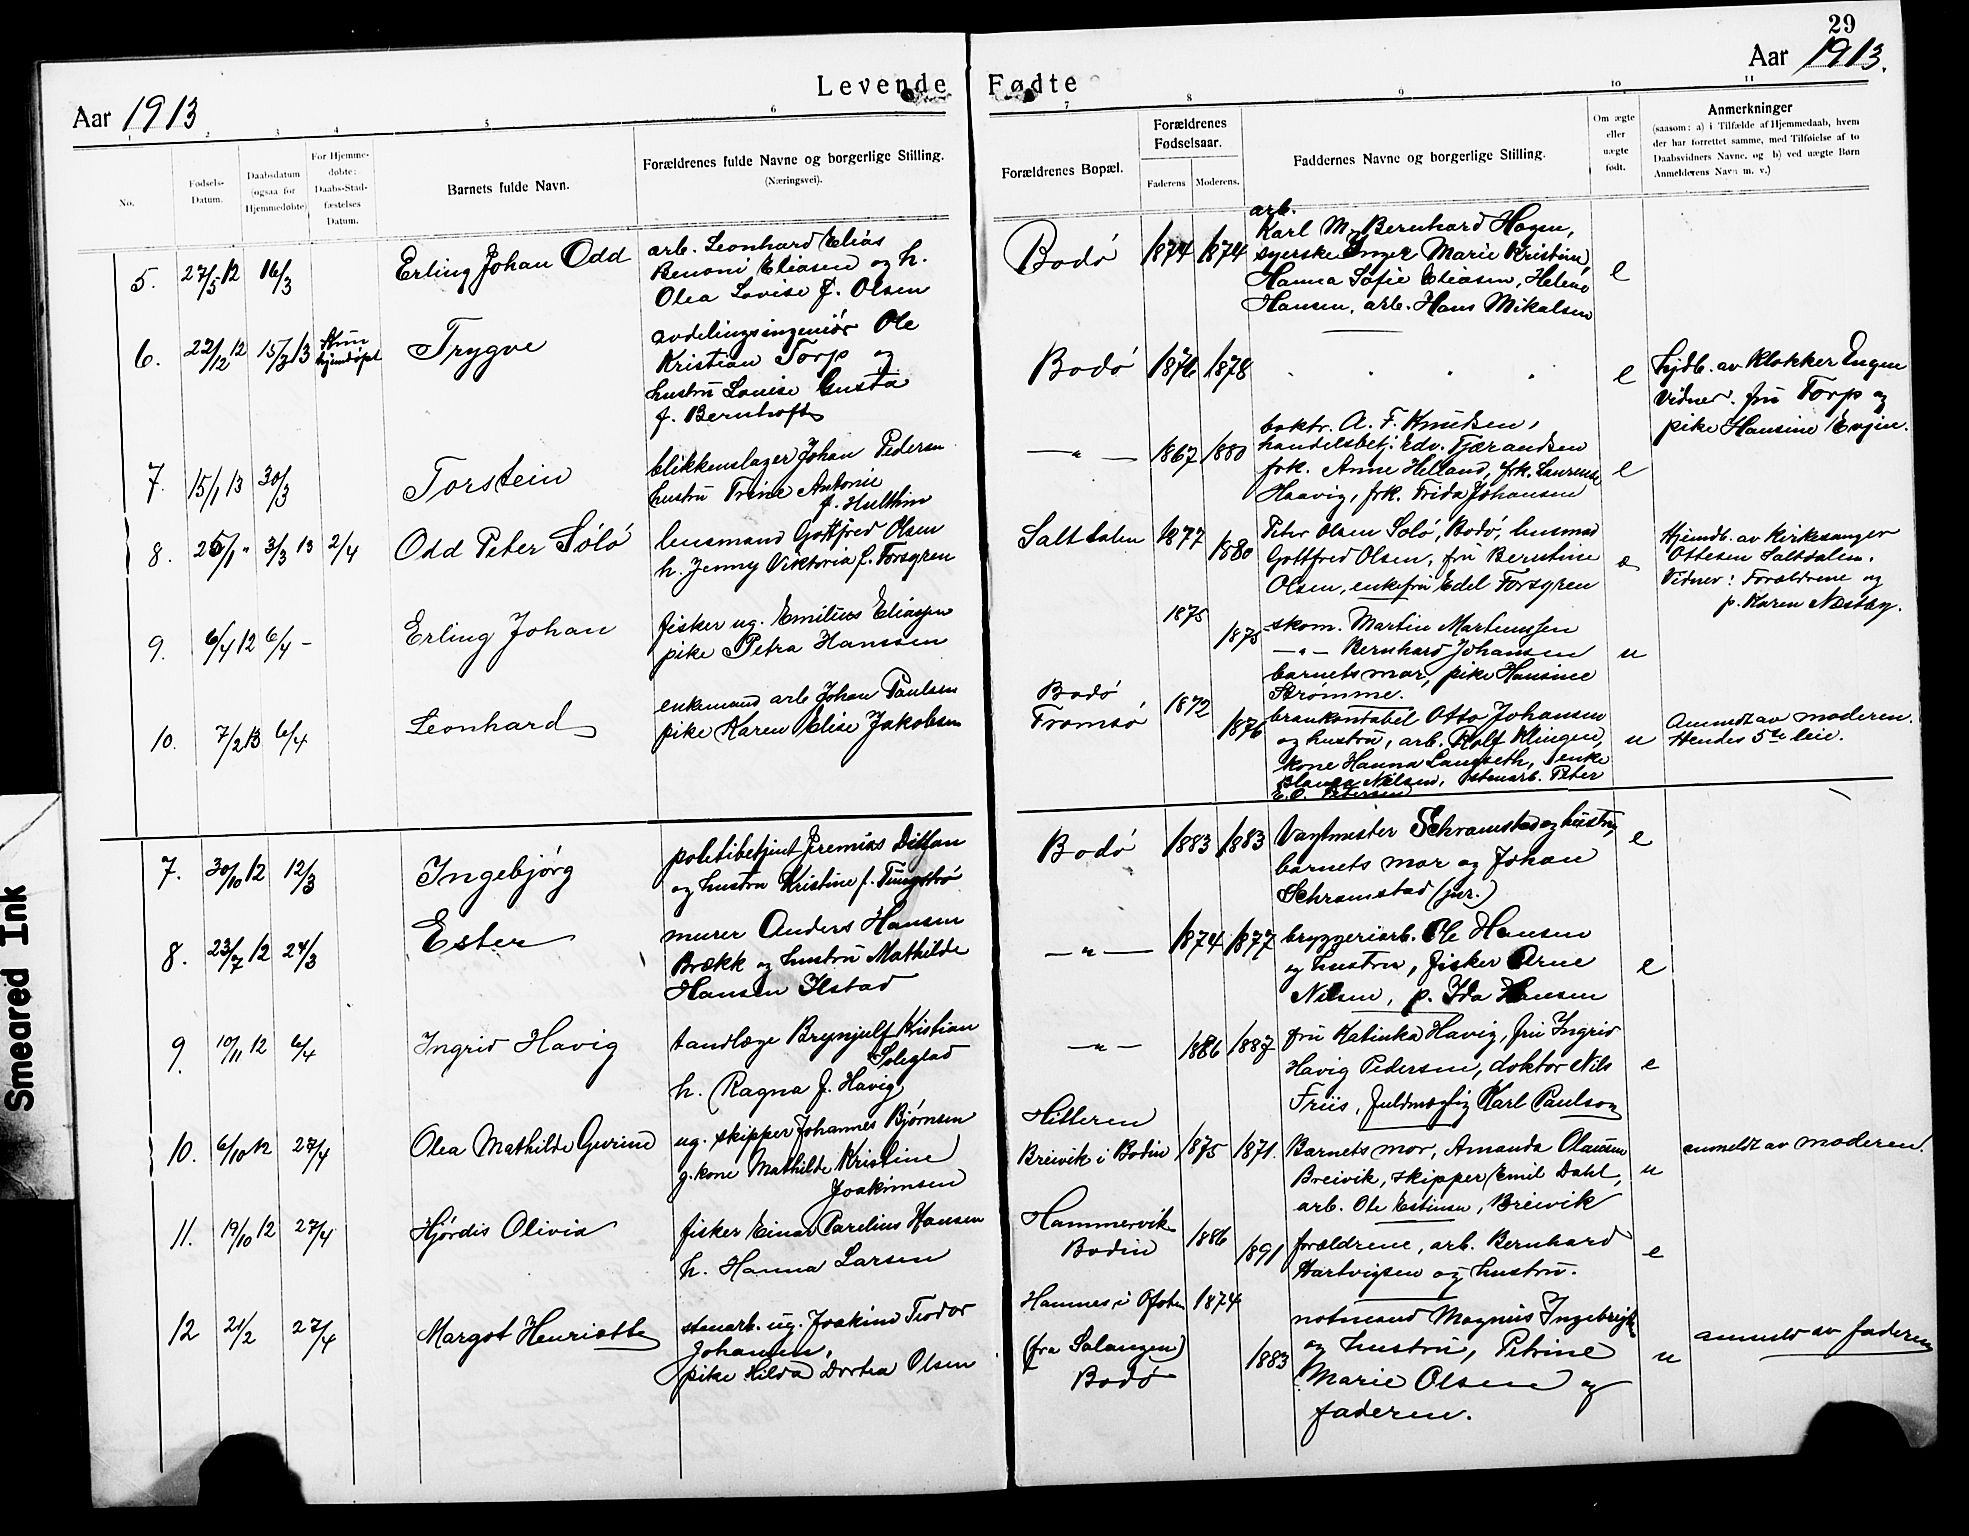 29
Aar 1913
Levende Fødte
Aar 1913.
1 2 3 4 5 6 7 8 9 10 11
No.
Fødsels-Datum.
Daabsdatum (ogsaa for Hjemmedøbte)
For Hjemme-døbte: Daabs-Stad-fæstelses Datum.
Barnets fulde Navn.
Forældrenes fulde Navne og borgerlige Stilling.
(Næringsvei).
Forældrenes Bopæl.
Forældrenes Fødselsaar.
Faderens. Moderens.
Faddernes Navne og borgerlige Stilling.
Om ægte eller uægte født.
Anmerkninger
(saasom: a) i Tilfælde af Hjemmedaab, hvem
der har forrettet samme, med Tilføielse af to
Daabsvidners Navne, og b) ved uægte Børn
Anmelderens Navn m. v.)
5. 27/5 12 16/3 Erling Johan Odd
arb. Leonhard Elias
Benoni Eliasen og h.
Olea Lovise f. Olsen
Bodó 1874 1874
arb.
Karl M. Bernhard Hagen,
syerske Inger Marie Kristine,
Hanna Sofie Eliasen, Helene
Hansen, arb. Hans Mikalsen
e
6. 22/12 12 15/3 13 hjemdöpt Trygve
avdelingsingeniör Ole
Kristian Torp og
hustru Louise Gusta
f. Bernhoft
Bodó 1876 1878
e
Hjdb. av Klokker Engen
Vidner. fru Torp og
pike Hansine Evjen.
7. 15/1 13 30/3 Torstein
blikkenslager Johan Pedersen
hustru Trine Antonie
f. Hulthin
—"— 1867 1880
baktr. A. F. Knudsen,
handelsbetj. Edv. Tjærandsen
frk. Anne Helland, frk. Laurense
Haavig, frk. Frida Johansen
e
8. 25/1 " 3/3 13 2/4 Odd Peter Sóló
lensmand Gottfred Olsen
h. Jenny Viktoria f. Forsgren
Saltdalen 1877 1880
Peter Olsen Soló, Bodó, lensmand
Gottfred Olsen, fru Berntine
Olsen, enkefru Edel Forsgren
e
Hjemdb. av Kirkesanger
Ottesen Saltdalen.
Vidner: Forældrene og
p. Karen Næstby.
9. 6/4 12 6/4 – Erling Johan
fisker ug. Emilius Eliassen
pike Petra Hanssen
1875 1875
skom. Martin Martinussen
—"— Bernhard Johansen
barnets mor, pike Hansine
Strömme.
u
10. 7/2 13 6/4 Leonhard
enkemand arb Johan Paulsen
pike Karen Elise Jakobsen
Bodó
Tromsó 1872 1876
brankonstabel Otto Johansen
og hustru, arb. Rolf Klingen,
kone Hanna Langseth, enke
Nilsen, stenarb. Peter
E. O. Petersen
u
Anmeldt av moderen.
Hendes 5te leie.
7. 30/10 12 12/3 Ingebjórg
politibetjent Jeremias
og hustru Kristine f.
Bodó 1883 1883
Vagtmester Schramstad og hustru
barnets mor og Johan
Schramstad (jnr.)
e
8. 23/7 12 24/3 Ester
murer Anders Hansen
Brækk og hustru Mathilde
Hansen Ilstad
—"— 1874 1877
bryggeriarb. Ole Hansen
og hustru, fisker Arne
Nilsen, p. Ida Hansen
e
9. 10/11 12 6/4 Ingrid Havig
tandlæge Brynjulf Kristian
Soleglad
h. Ragna f. Havig
—"— 1886 1887
fru Katinka Havig, fru Ingrid
Havig Pedersen, doktor Nils
Friis, fuldmægtig Karl Paulson
e
10. 6/10 12 27/4 Olea Mathilde Gurine
ug. skipper Johannes Bjørnsen
g. kone Mathilde Kristine
Joakimsen
Hitteren
Breivik i Bodin 1875 1871.
Barnets mor, Amanda Olausen
Breivik, skipper Emil Dahl,
arb. Ole Estensen, Breivik
u
anmeldt av moderen.
11. 19/10 12 27/4 Hjórdis Olivia
fisker Einar Parelius Hansen
h. Hanna Larsen
Hammervik
Bodin 1886 1891
forældrene, arb. Bernhard
Hartvigsen og hustru.
e
12 21/2 27/4 Margot Henriette
stenarb. ug. Joakim Teodor
Johansen,
pike Hilda Dortea Olsen
Hamnes i Ofoten 1874
(fra Salangen)
Bodó 1883
notmand Magnus Ingebrigts
og hustru, Petrine
Marie Olsen og
faderen.
u
anmeldt av faderen
Smeared Ink